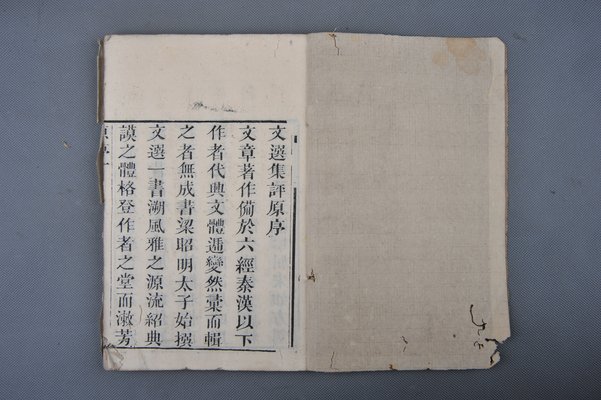 文選集評原序
文章著作備於六經秦漢以下
作者代興文體遞變然彙而輯
之者無成書梁昭明太子始撰
文選一書溯風雅之源流紹典
謨之體格登作者之堂而漱芳
原序一